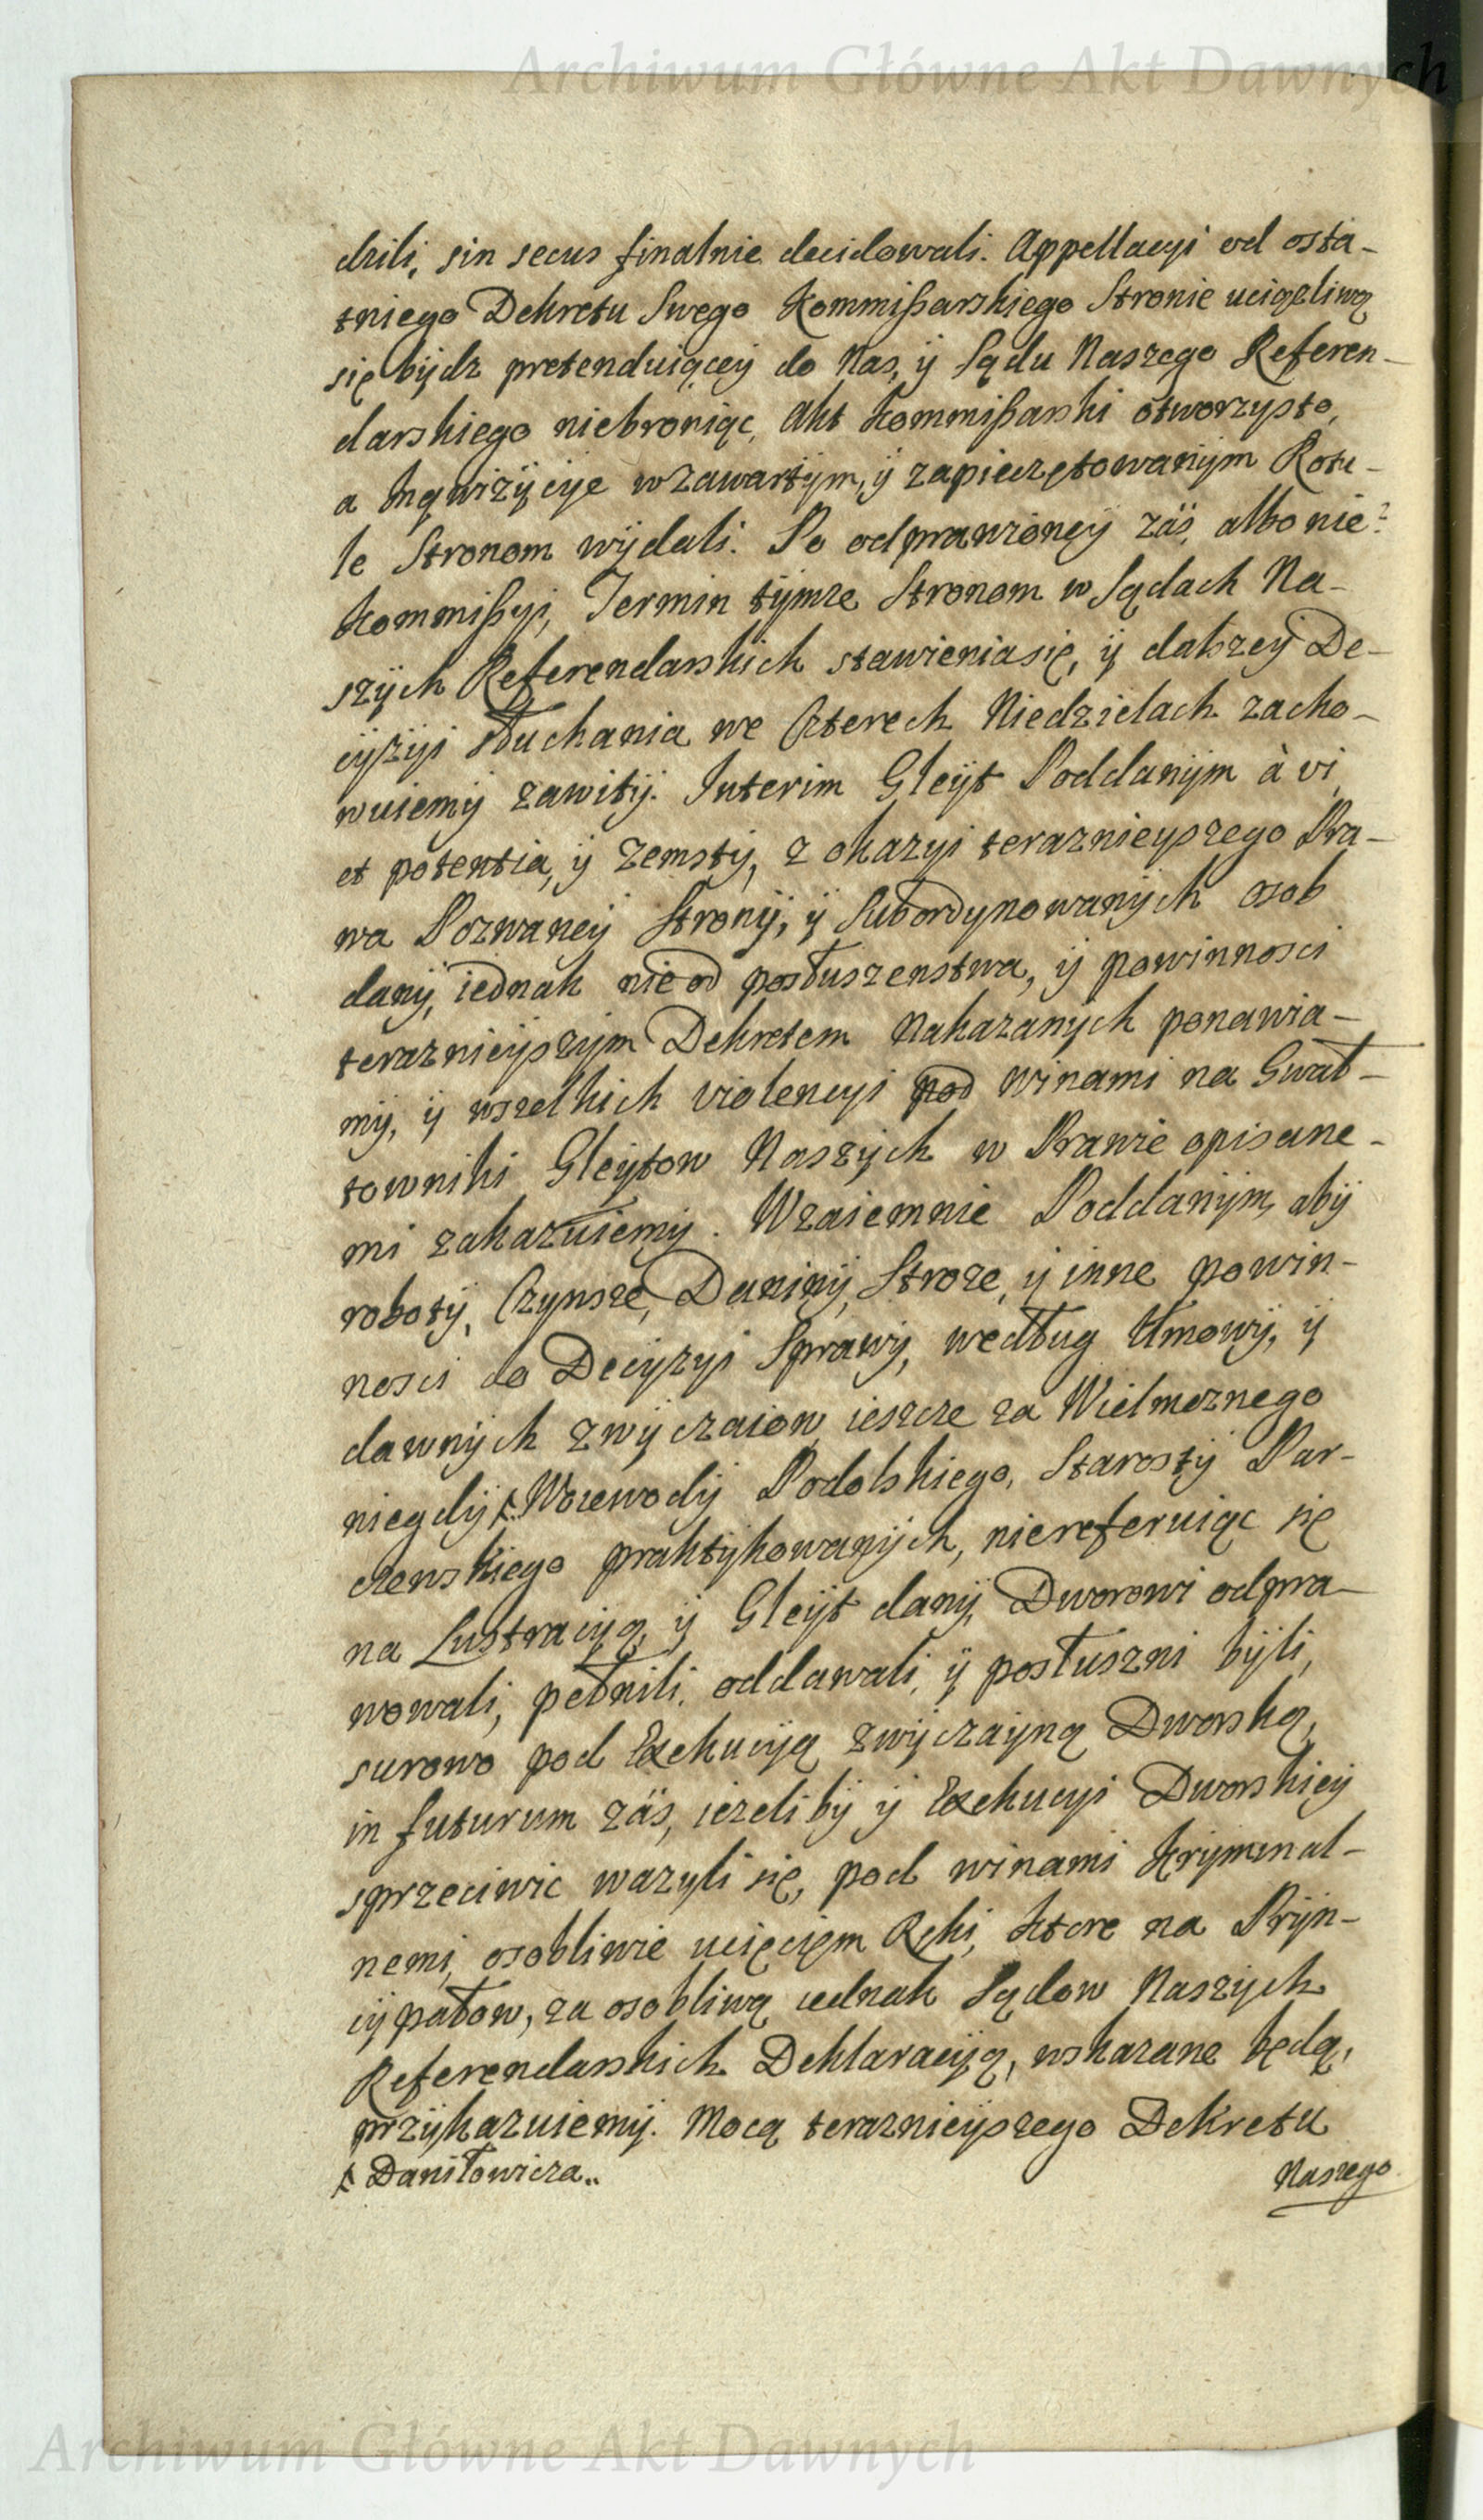 Archiwum Główne Akt Dawnych
dzili, sin secus finalnie decidowali. Appellacyi od osta-
tniego Dekretu Swego Kommißarskiego Stronie uciązliwą
się bÿdz pretenduiącey do Nas, ÿ Sądu Naszego Referen-
darskiego niebroniąc, Akt Kommißarski otworzysto,
a Inqwizÿcÿe w zawartÿm, ÿ zapieczętowanÿm Rotu-
le Stronom wÿdali. Po odprawioneÿ zäs, albo nie?
Kommißyi, Termin tÿmze Stronom w Sądach Na-
szÿch Referendarskich stawienia się, ÿ dalszeÿ De-
cÿzÿi słuchania we Czterech Niedzielach zacho-
wuiemÿ zawitÿ. Interim Gleÿt Poddanÿm à vi
et potentia, ÿ zemstÿ, z okazyi teraznieyszego Pra-
wa Pozwaneÿ Stronÿ, ÿ Subordynowanÿch osob
danÿ, iednak nie od posłuszenstwa, ÿ powinnosci
teraznieÿszÿm Dekretem Nakazanÿch ponawia-
mÿ, ÿ wszelkich violencyi pod winami na Gwał-
towniki Gleÿtow Naszÿch w Prawie opisane-
mi zakazuiemÿ. Wzaiemnie Poddanÿm, abÿ
robotÿ, Czynsze, Daninÿ, Stroze, ÿ inne powin-
nosci do Decÿzyi Sprawÿ, według Umowÿ, ÿ
dawnÿch zwÿczaiow ieszcze za Wielmoznego
niegdÿ ⨍ Woiewodÿ Podolskiego, Starostÿ Par-
czewskiego praktÿkowanÿch, niereferuiąc się
na Lustracÿą, ÿ Gleÿt danÿ, Dworowi odpra-
wowali, pełnili, oddawali, ÿ posłuszni bÿli,
surowo pod Exekucÿą zwÿczaÿną Dworską,
in futurum zäs, iezeli bÿ ÿ Exekucyi Dworskieÿ
sprzeciwic wazyli się, pod winami Krÿminal-
nemi, osobliwie ucięciem Ręki, ktore na Prÿn-
cÿpałow, za osobliwą iednak Sądow Naszÿch
Referendarskich Deklaracÿą, wskazane będą,
przÿkazuiemÿ. Mocą teraznieÿszego Dekretu
⨍ Daniłowicza..
Naszego
Archiwum Główne Akt Dawnych